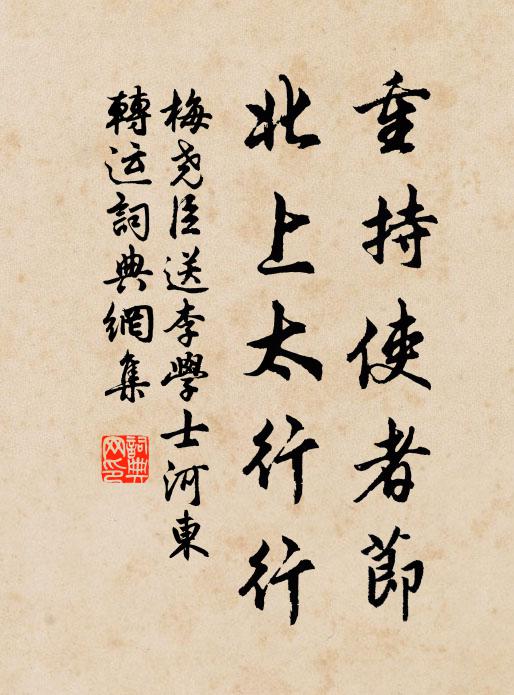 重持使者節
北上太行行
梅堯臣送李學士河東
轉运詞典網集
詞典网印